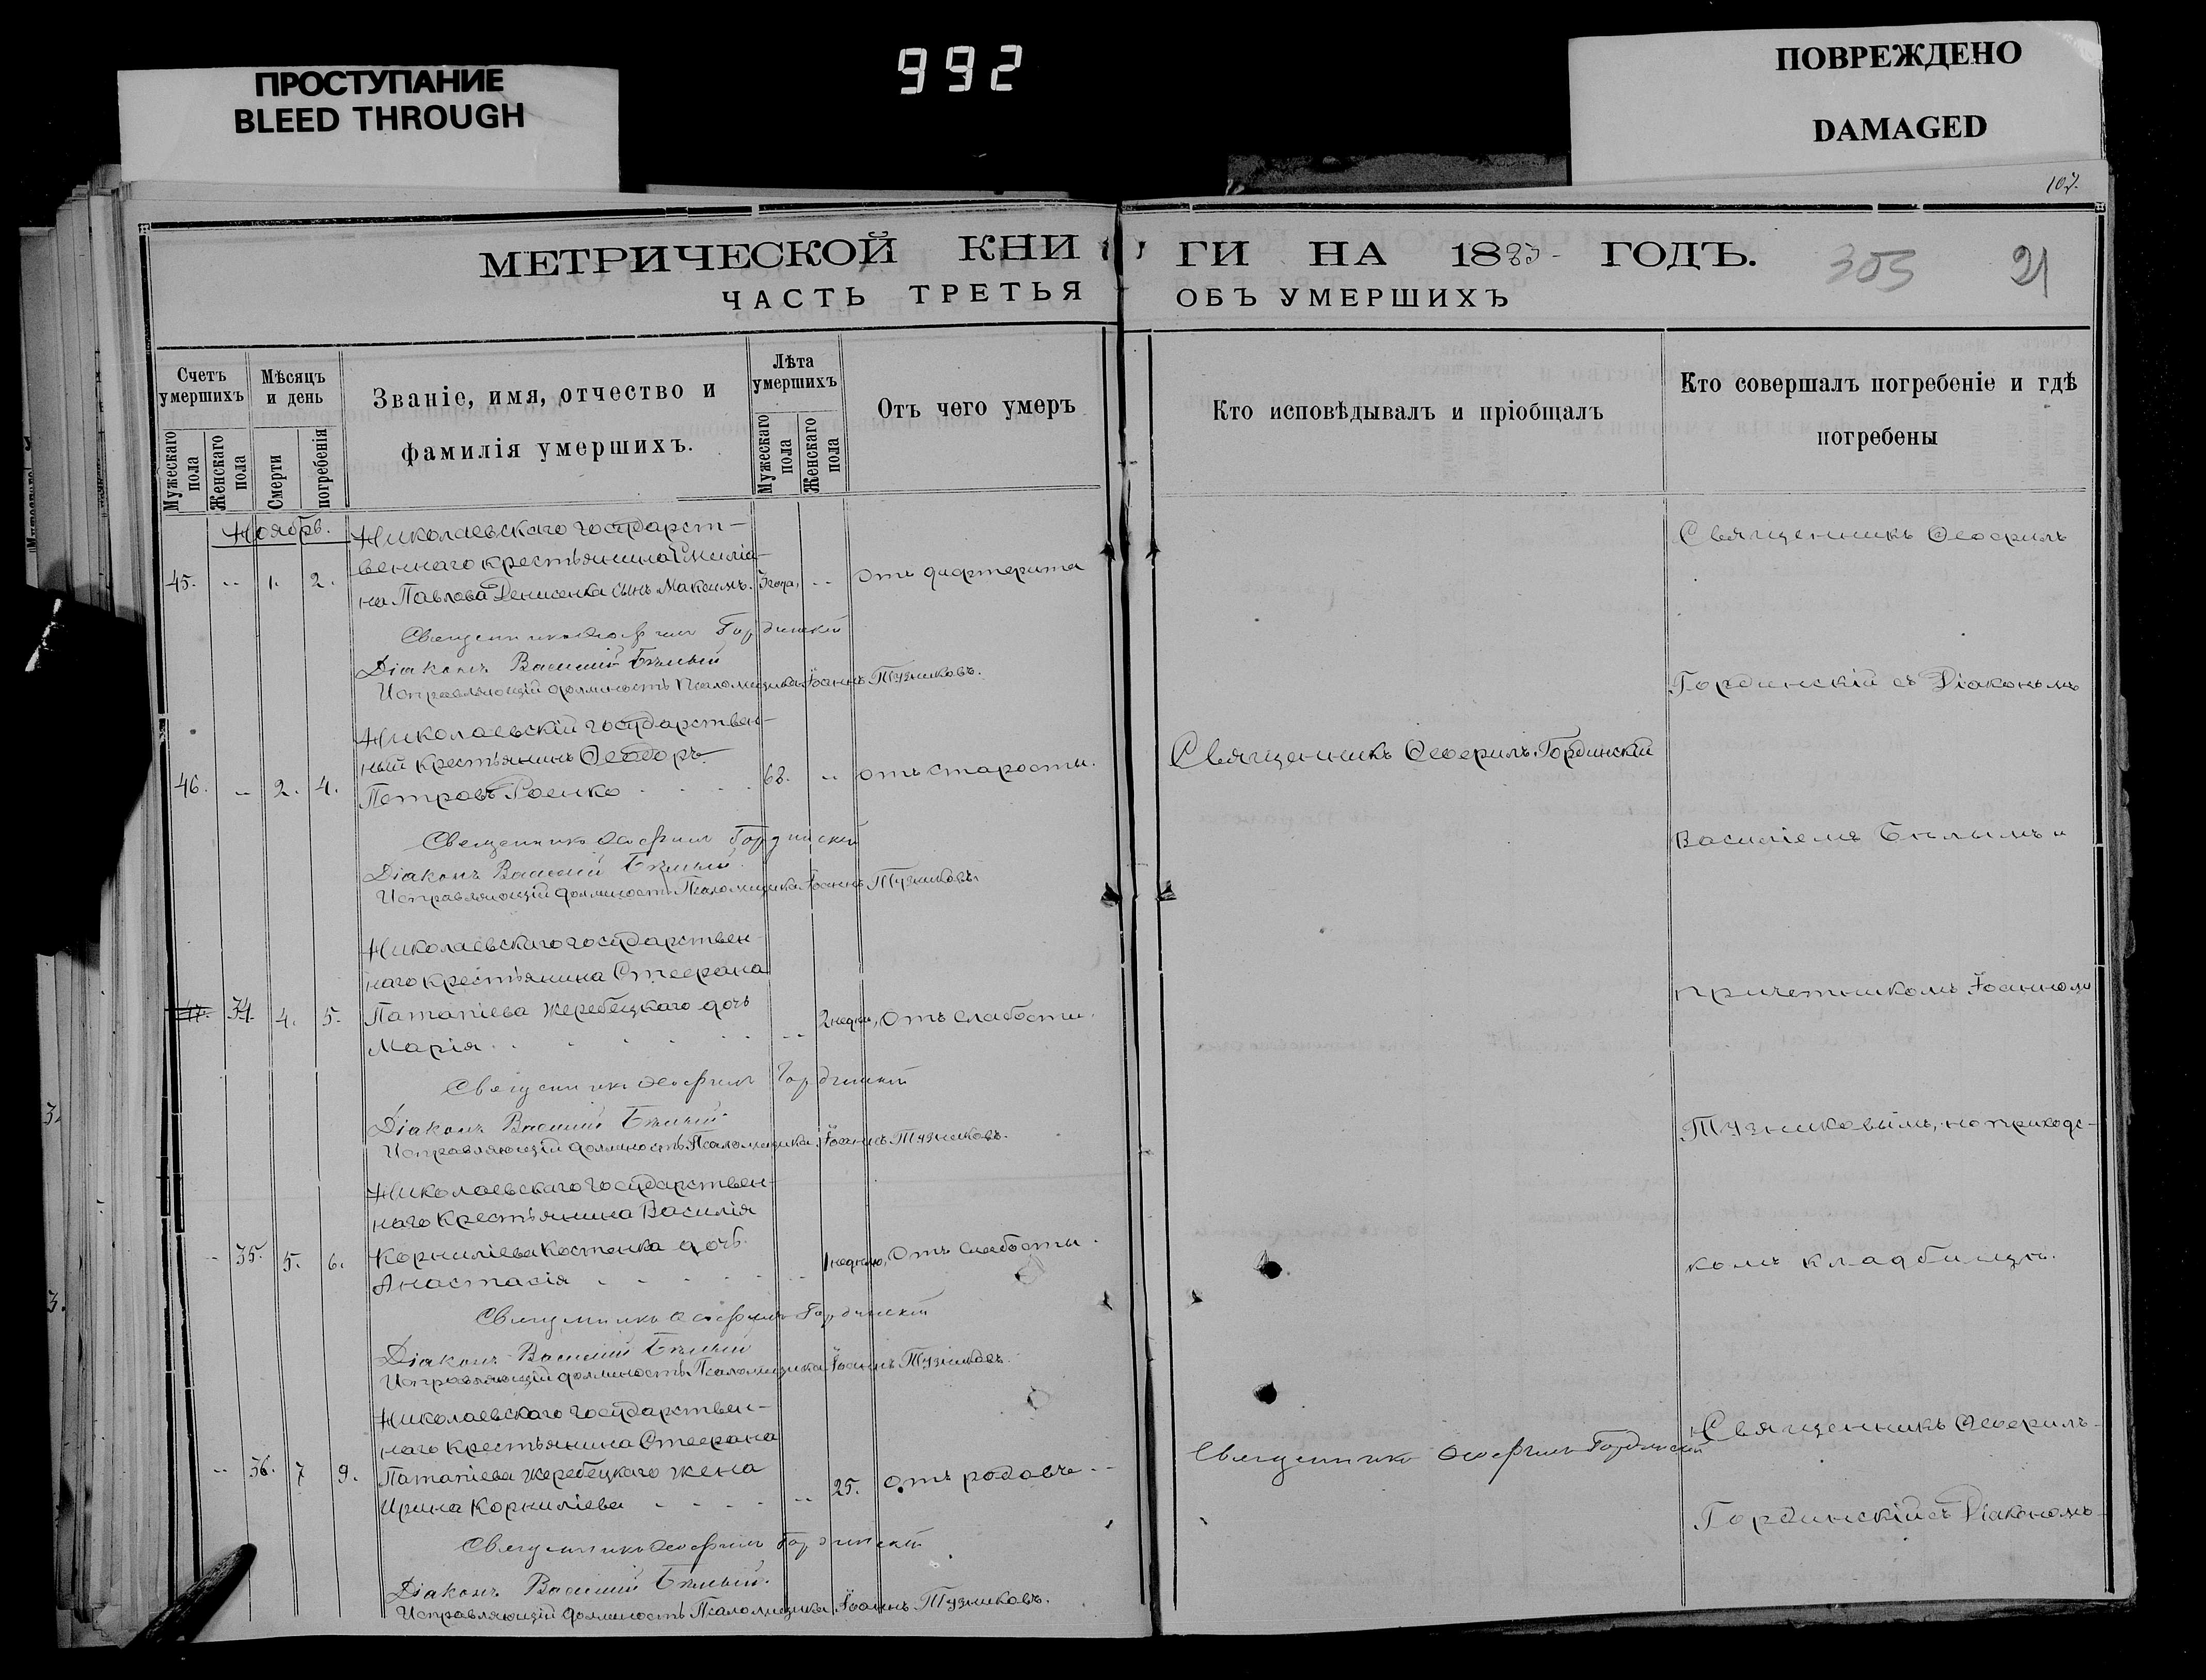 ПРОСТУПАНИЕ
BLEED THROUGH
992
ПОВРЕЖДЕНО
DAMAGED
107.
МЕТРИЧЕСКОЙ КНИ
ГИ НА 1883 ГОДЪ.
305
21
ЧАСТЬ ТРЕТЬЯ
ОБЪ УМЕРШИХЪ
Счетъ умершихъ
Мужескаго пола
Женскаго пола
Мѣсяцъ и день
Смерти
погребенія
Званіе, имя, отчество и
фамилія умершихъ.
Лѣта умершихъ
Мужескаго пола
Женскаго пола
Отъ чего умеръ
Кто исповѣдывалъ и пріобщалъ
Кто совершалъ погребеніе и гдѣ
погребены
Ноябрь.
Николаевскаго государст-
веннаго крестьянина Емиліа-
45. -- 1. 2. на Павлова Денисенка сынъ Максимъ. 3 года, -- Отъ дифтерита
Священникъ Ѳеофилъ Гординскій
Діаконъ Василій Бѣлый
Исправляющій должность Псаломщика Іоаннъ Тузниковъ.
Николаевскій государствен-
ный крестьянинъ Ѳеодоръ
46. -- 2. 4. Петровъ Роенко 68. -- отъ старости.
Священникъ Ѳеофилъ Гординскій
Діаконъ Василій Бѣлый
Исправляющій должность Псаломщика Іоаннъ Тузниковъ.
Николаевскаго государствен-
наго крестьянина Стефана
47. 34. 4. 5. Патапіева Жеребецкаго дочь
Марія -- 2 недѣли, Отъ слабости.
Священникъ Ѳеофилъ Гординскій
Діаконъ Василій Бѣлый
Исправляющій должность Псаломщика Іоаннъ Тузниковъ.
Николаевскаго Государствен-
наго Крестьянина Василія
-- 35. 5. 6. Корниліева Костенка дочь
Анастасія -- 1 недѣлю, Отъ слабости.
Священникъ Ѳеофилъ Гординскій
Діаконъ Василій Бѣлый
Исправляющій должность Псаломщика Іоаннъ Тузниковъ.
Николаевскаго Государствен-
наго крестьянина Стефана
-- 36. 7 9. Патапіева Жеребецкаго жена
Ирина Корниліева -- 25. Отъ родовъ
Священникъ Ѳеофилъ Гординскій
Діаконъ Василій Бѣлый.
Исправляющій должность Псаломщика Іоаннъ Тузниковъ.
Священникъ Ѳеофилъ Гординскій
Священникъ Ѳеофилъ Гординскій
Священникъ Ѳеофилъ
Гординскій съ Діакономъ
Василіемъ Бѣлымъ и
причетникомъ Іоанномъ
Тузниковымъ, на приходс-
комъ кладбищѣ.
Священникъ Ѳеофилъ
Гординскій съ Діакономъ